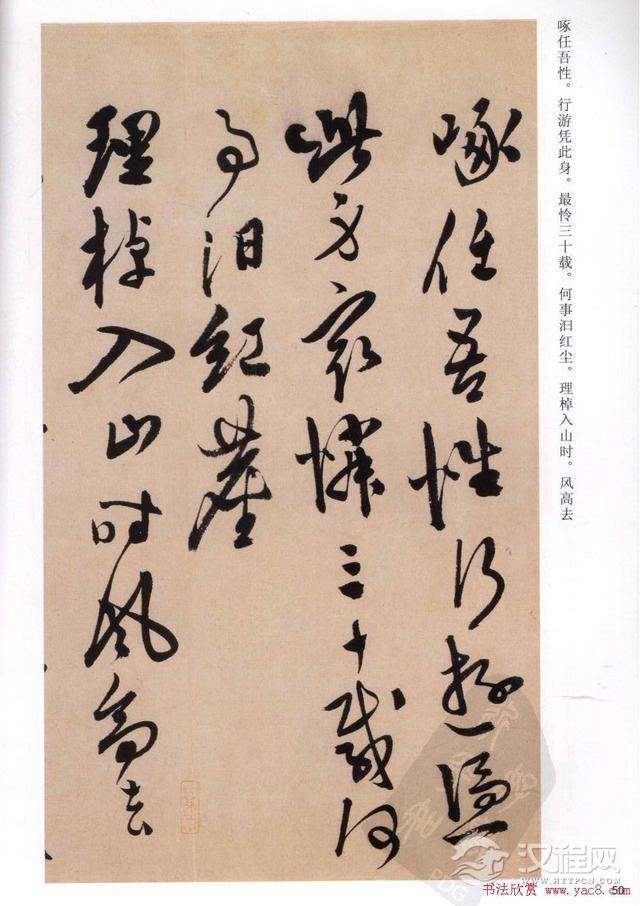 啄任吾性。行游凭此身。最怜三十载。何事汩红尘。理棹入山时。风高去
啄任吾性行遊憑
此身最憐三十載何
事汩紅塵
理棹入山时風高去
汉程网
WWW.HTTPCN.COM
PDG
50
书法欣赏 www.yac8.com